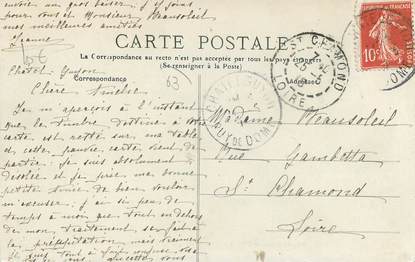 encore un gros baiser, de
pour vous et Monsieur Beausoleil
mes meilleures amitiés
Jeanne
CARTE POSTALE
La Correspondance au recto n'est pas acceptée par tous les pays étrangers
(Se renseigner à la Poste)
Correspondance
Adresse
63
Chatel Guyon
Chère
Je m'aperçois à l'instant
que le timbre destiné à votre
carte est resté sur ma table
et cette pauvre carte vient de
partir. Je suis absolument
désolée et je prie ma bonne
petite amie de bien vouloir
m'excuser. j'ai si peu de
temps à moi que tout en dehors
de mon traitement se fait à
la précipitation mais vraiment
je suis tout à fait confuse
Madame Beausoleil
Rue Gambetta
St Chamond
Loire
ST CHAMOND
LOIRE
CHATEL-GUYON
PUY-DE-DOME
10